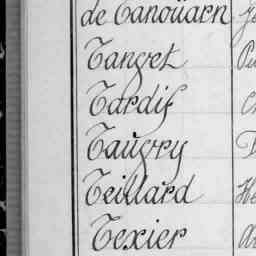 de Tanoüarn
Tanget
Tardif
Taugry
Teillard
Texier